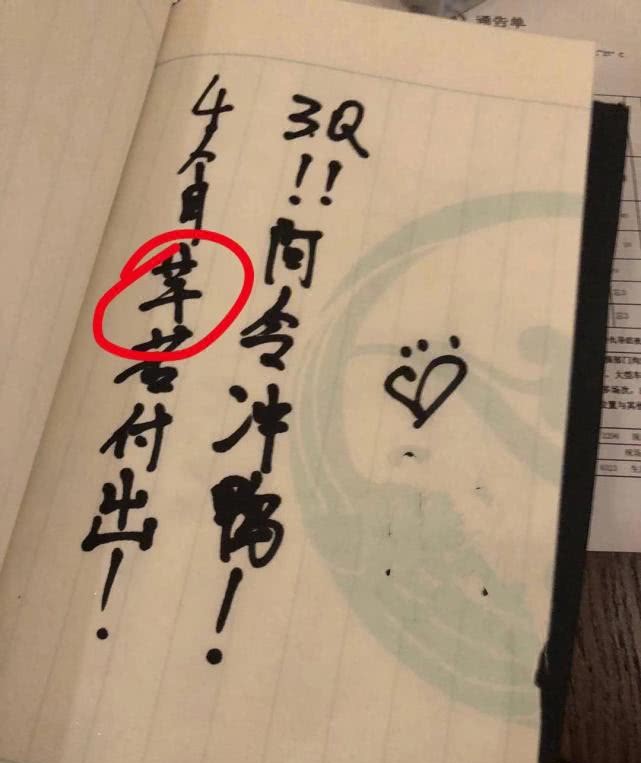 通告单
3Q!!阿令冲鸭!
4个月莘苦付出!